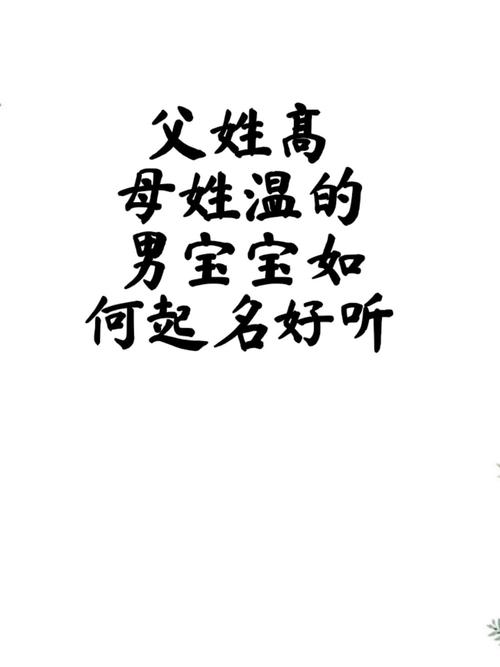 父姓高
母姓温的
男宝宝如
何起名好听